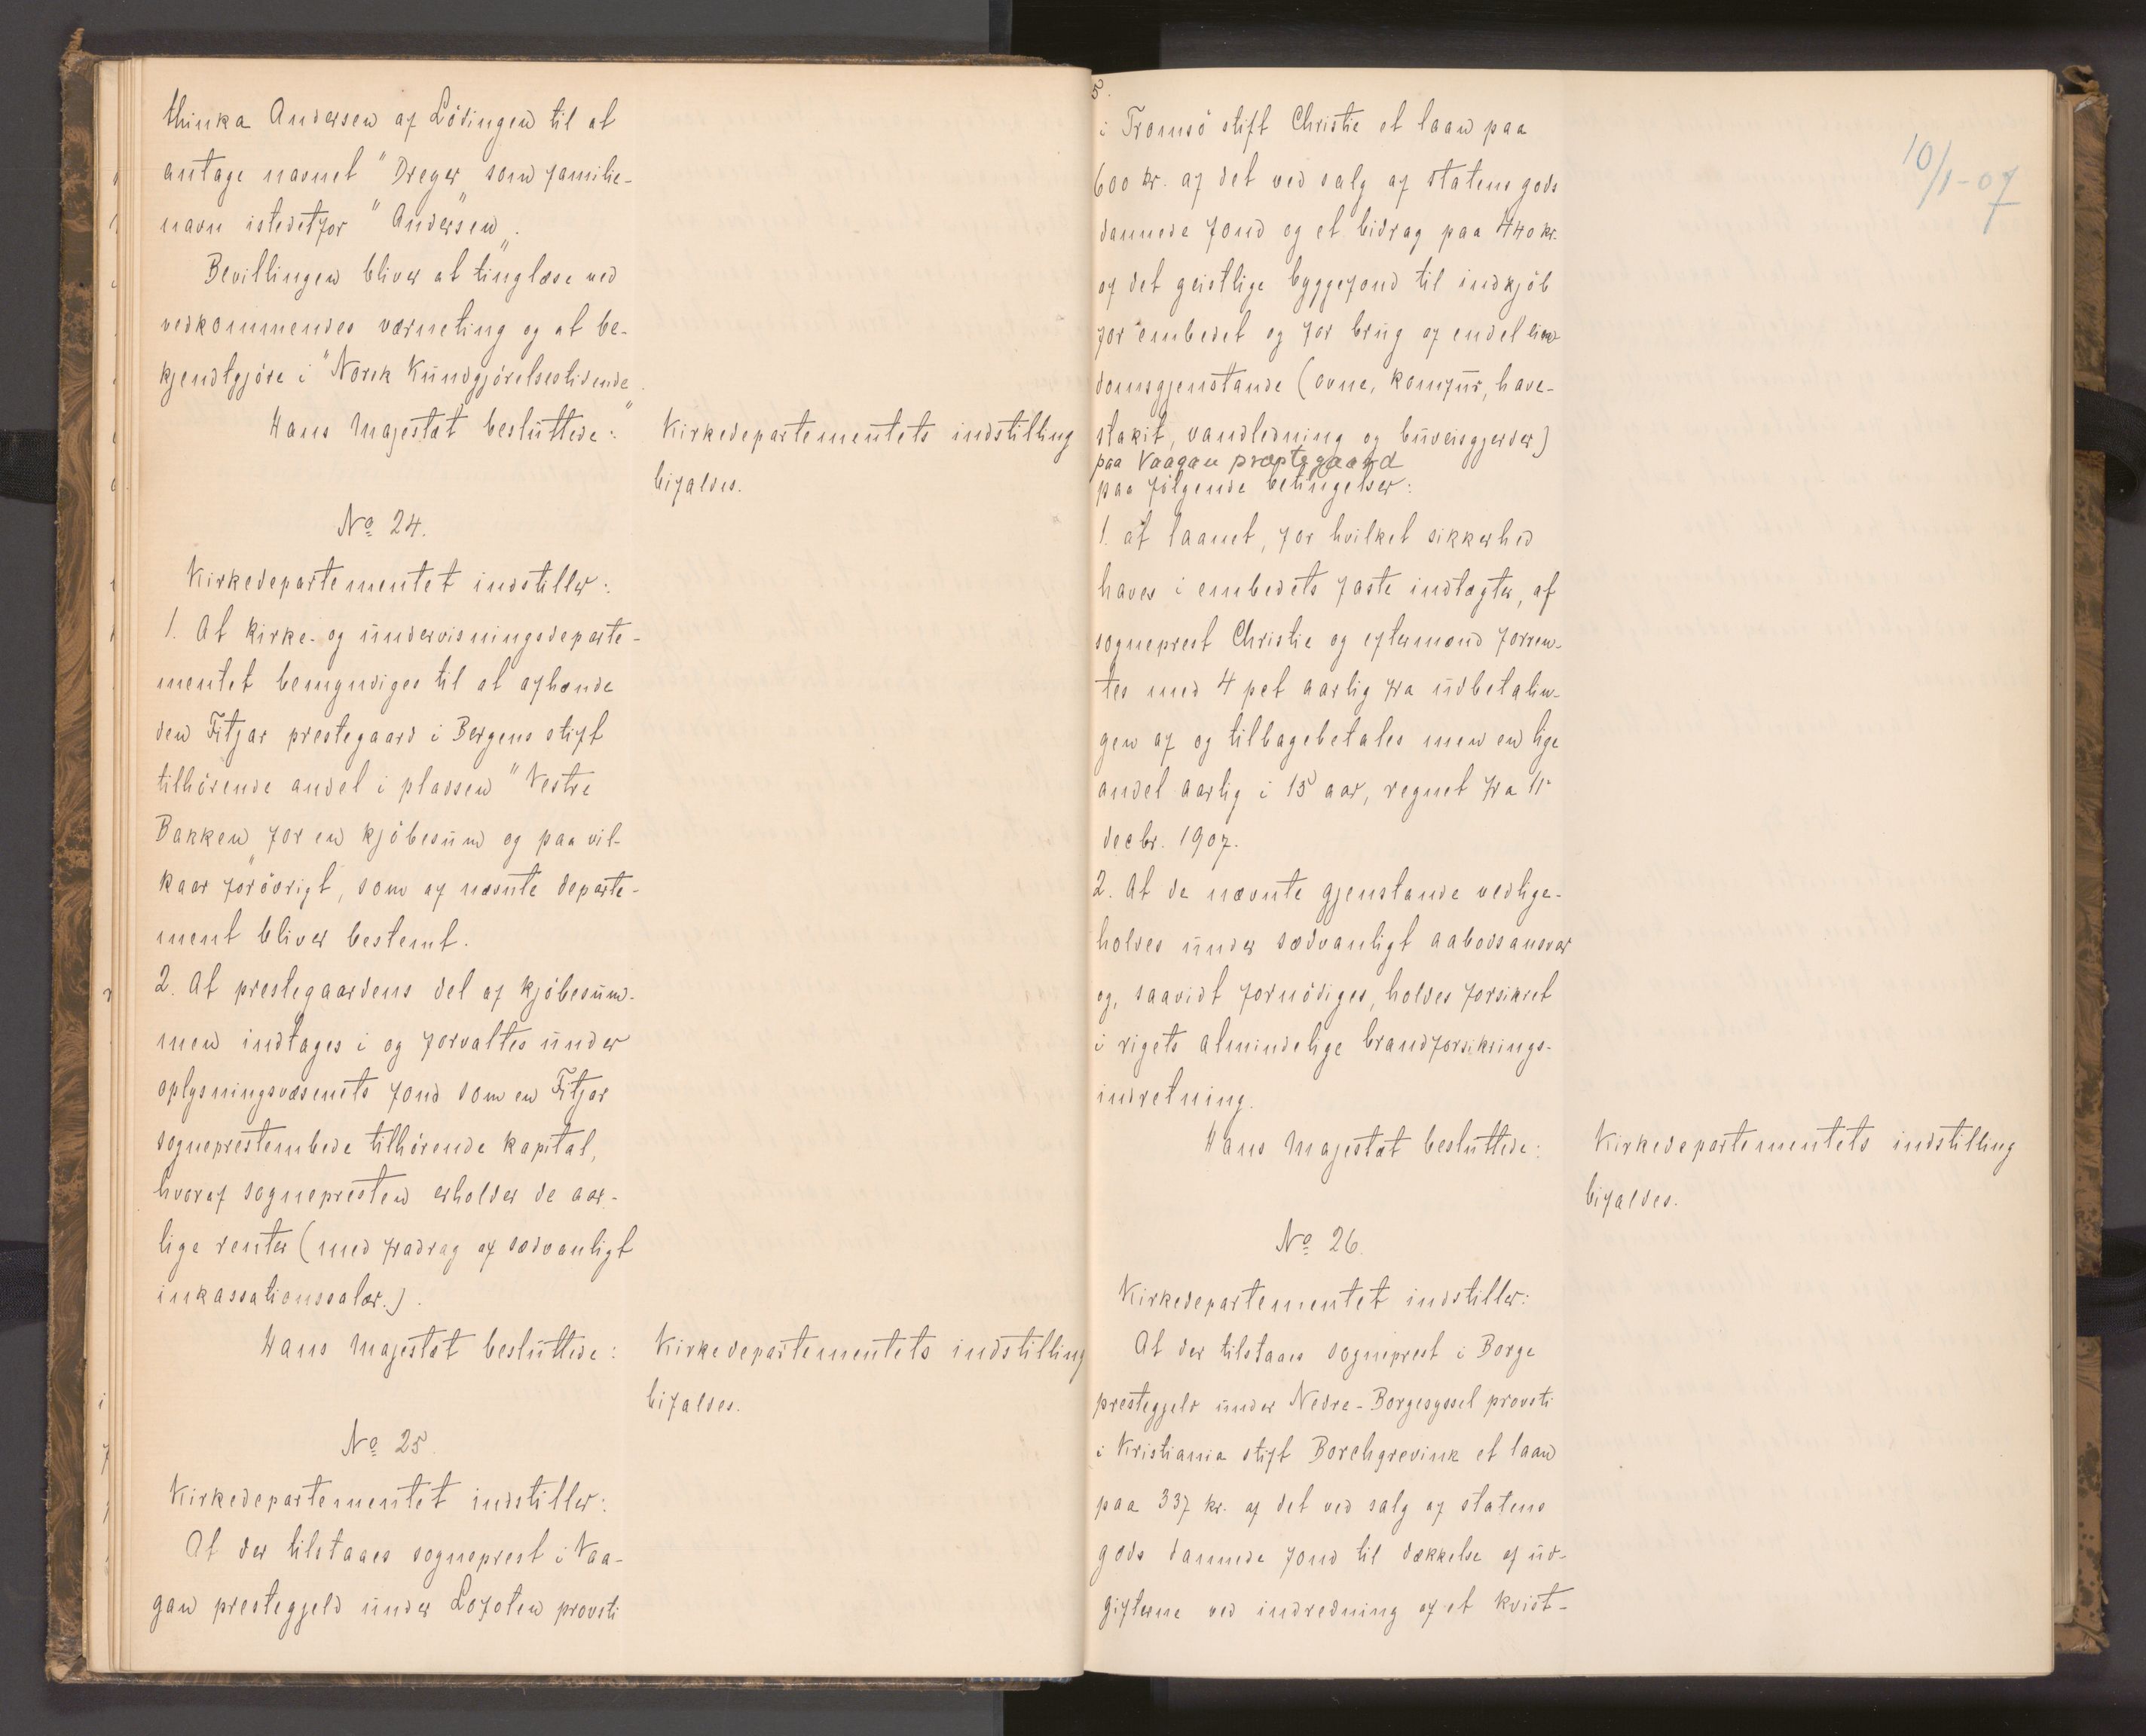 thinka Andersen af Lödingen til at
antage navnet "Dreyer" som familie-
navn istedetfor "Andersen".
Bevillingen bliver at tinglæse ved
vedkommendes værneting og at be-
kjendtgjöre i "Norsk Kundgjörelsestidende".
Hans Majestæt besluttede:
Kirkedepartementets indstilling
bifaldes.
No 24.
Kirkedepartementet indstiller:
1. At Kirke- og undervisningsdeparte-
mentet bemyndiges til at afhænde
den Fitjar prestegaard i Bergens stift
tilhörende andel i pladsen "Vestre
Bakken" for en kjöbesum og paa vil-
kaar forövrigt, som af nævnte departe-
ment bliver bestemt.
2. At prestegaardens del af kjöbesum-
men indtages i og forvaltes under
oplysningsvæsenets fond som en Fitjar
sogneprestembede tilhörende kapital,
hvoraf sognepresten erholder de aar-
lige renter (med fradrag af sædvanligt
inkassationssalær.).
Hans Majestæt besluttede:
Kirkedepartementets indstilling
bifaldes.
No 25.
Kirkedepartementet indstiller:
At der tilstaaes sogneprest i Vaa-
gan prestegjeld under Lofoten provsti
5.
i Tromsö stift Christie et laan paa
600 kr. af det ved salg af statens gods
dannede fond og et bidrag paa 440 kr.
af det geistlige byggefond til indkjöb
for embedet og for brug af endel eien-
domsgjenstande (ovne, komfur, have-
stakit, vandledning og buveisgjerder)
paa Vaagan præstegaard
paa fölgende betingelser:
1. at laanet, for hvilket sikkerhed
haves i embedets faste indtægter, af
sogneprest Christie og eftermænd forren-
tes med 4 pct aarlig fra udbetalin-
gen af og tilbagebetales men en lige
andel aarlig i 15 aar, regnet fra 11
decbr. 1907.
2. At de nævnte gjenstande vedlige-
holdes under sædvanligt aabodsansvar
og, saavidt fornödiges, holdes forsikret
i rigets almindelige brandforsikrings-
indretning.
Hans Majestæt besluttede:
Kirkedepartementets indstilling
bifaldes.
No 26.
Kirkedepartementet indstiller:
At der tilstaaes sogneprest i Borge
prestegjeld under Nedre-Borgesyssel provsti
i Kristiania stift Borchgrevink et laan
paa 337 kr. af det ved salg af statens
gods dannede fond til dækkelse af ud-
gifterne ved indredning af et kvist-
10/1-07